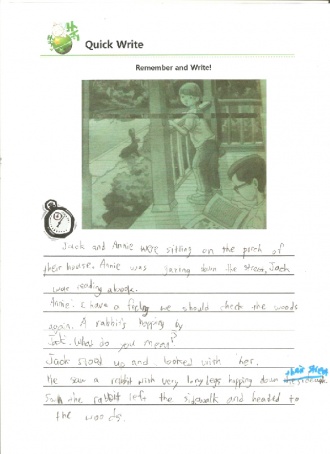 Quick Write
Remember and Write!
Jack and Annie were sitting on the porch of
their house. Annie was gazing down the street, Jack
was reading a book.
Annie: I have a feeling we should check the woods
again. A rabbit's hopping by
Jack: What do you mean?
Jack stood up and looked with her.
He saw a rabbit with very long legs hopping down their street
Soon the rabbit left the sidewalk and headed to
the woods.